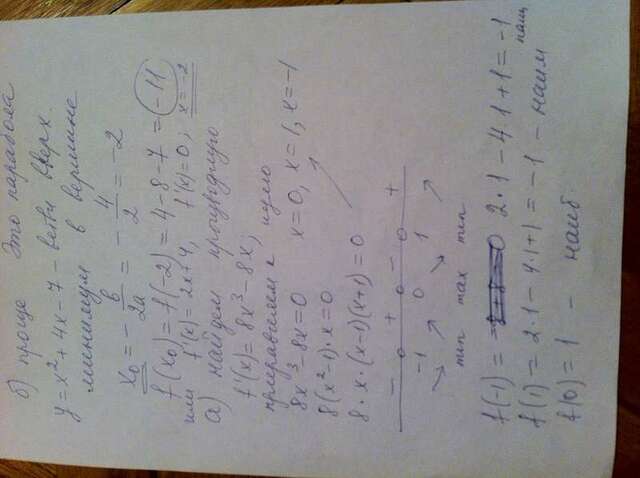 б) проще Это парабола
y = x² + 4x - 7 - ветви вверх.
минимум в вершине
x₀ = -b/2a = -4/2 = -2
f(x₀) = f(-2) = 4 - 8 - 7 = -11
или f'(x) = 2x + 4, f'(x) = 0, x = -2
а) найдем производную
f'(x) = 8x³ - 8x,
приравняем к нулю
8x³ - 8x = 0 x = 0, x = 1, x = -1
8(x² - 1)·x = 0
8·x·(x - 1)(x + 1) = 0
- 0 + 0 - 0 +
-1 0 1
min max min
f(-1) = 2·1 - 4·1 + 1 = -1
наим
f(1) = 2·1 - 4·1 + 1 = -1 - наим
f(0) = 1 - наиб